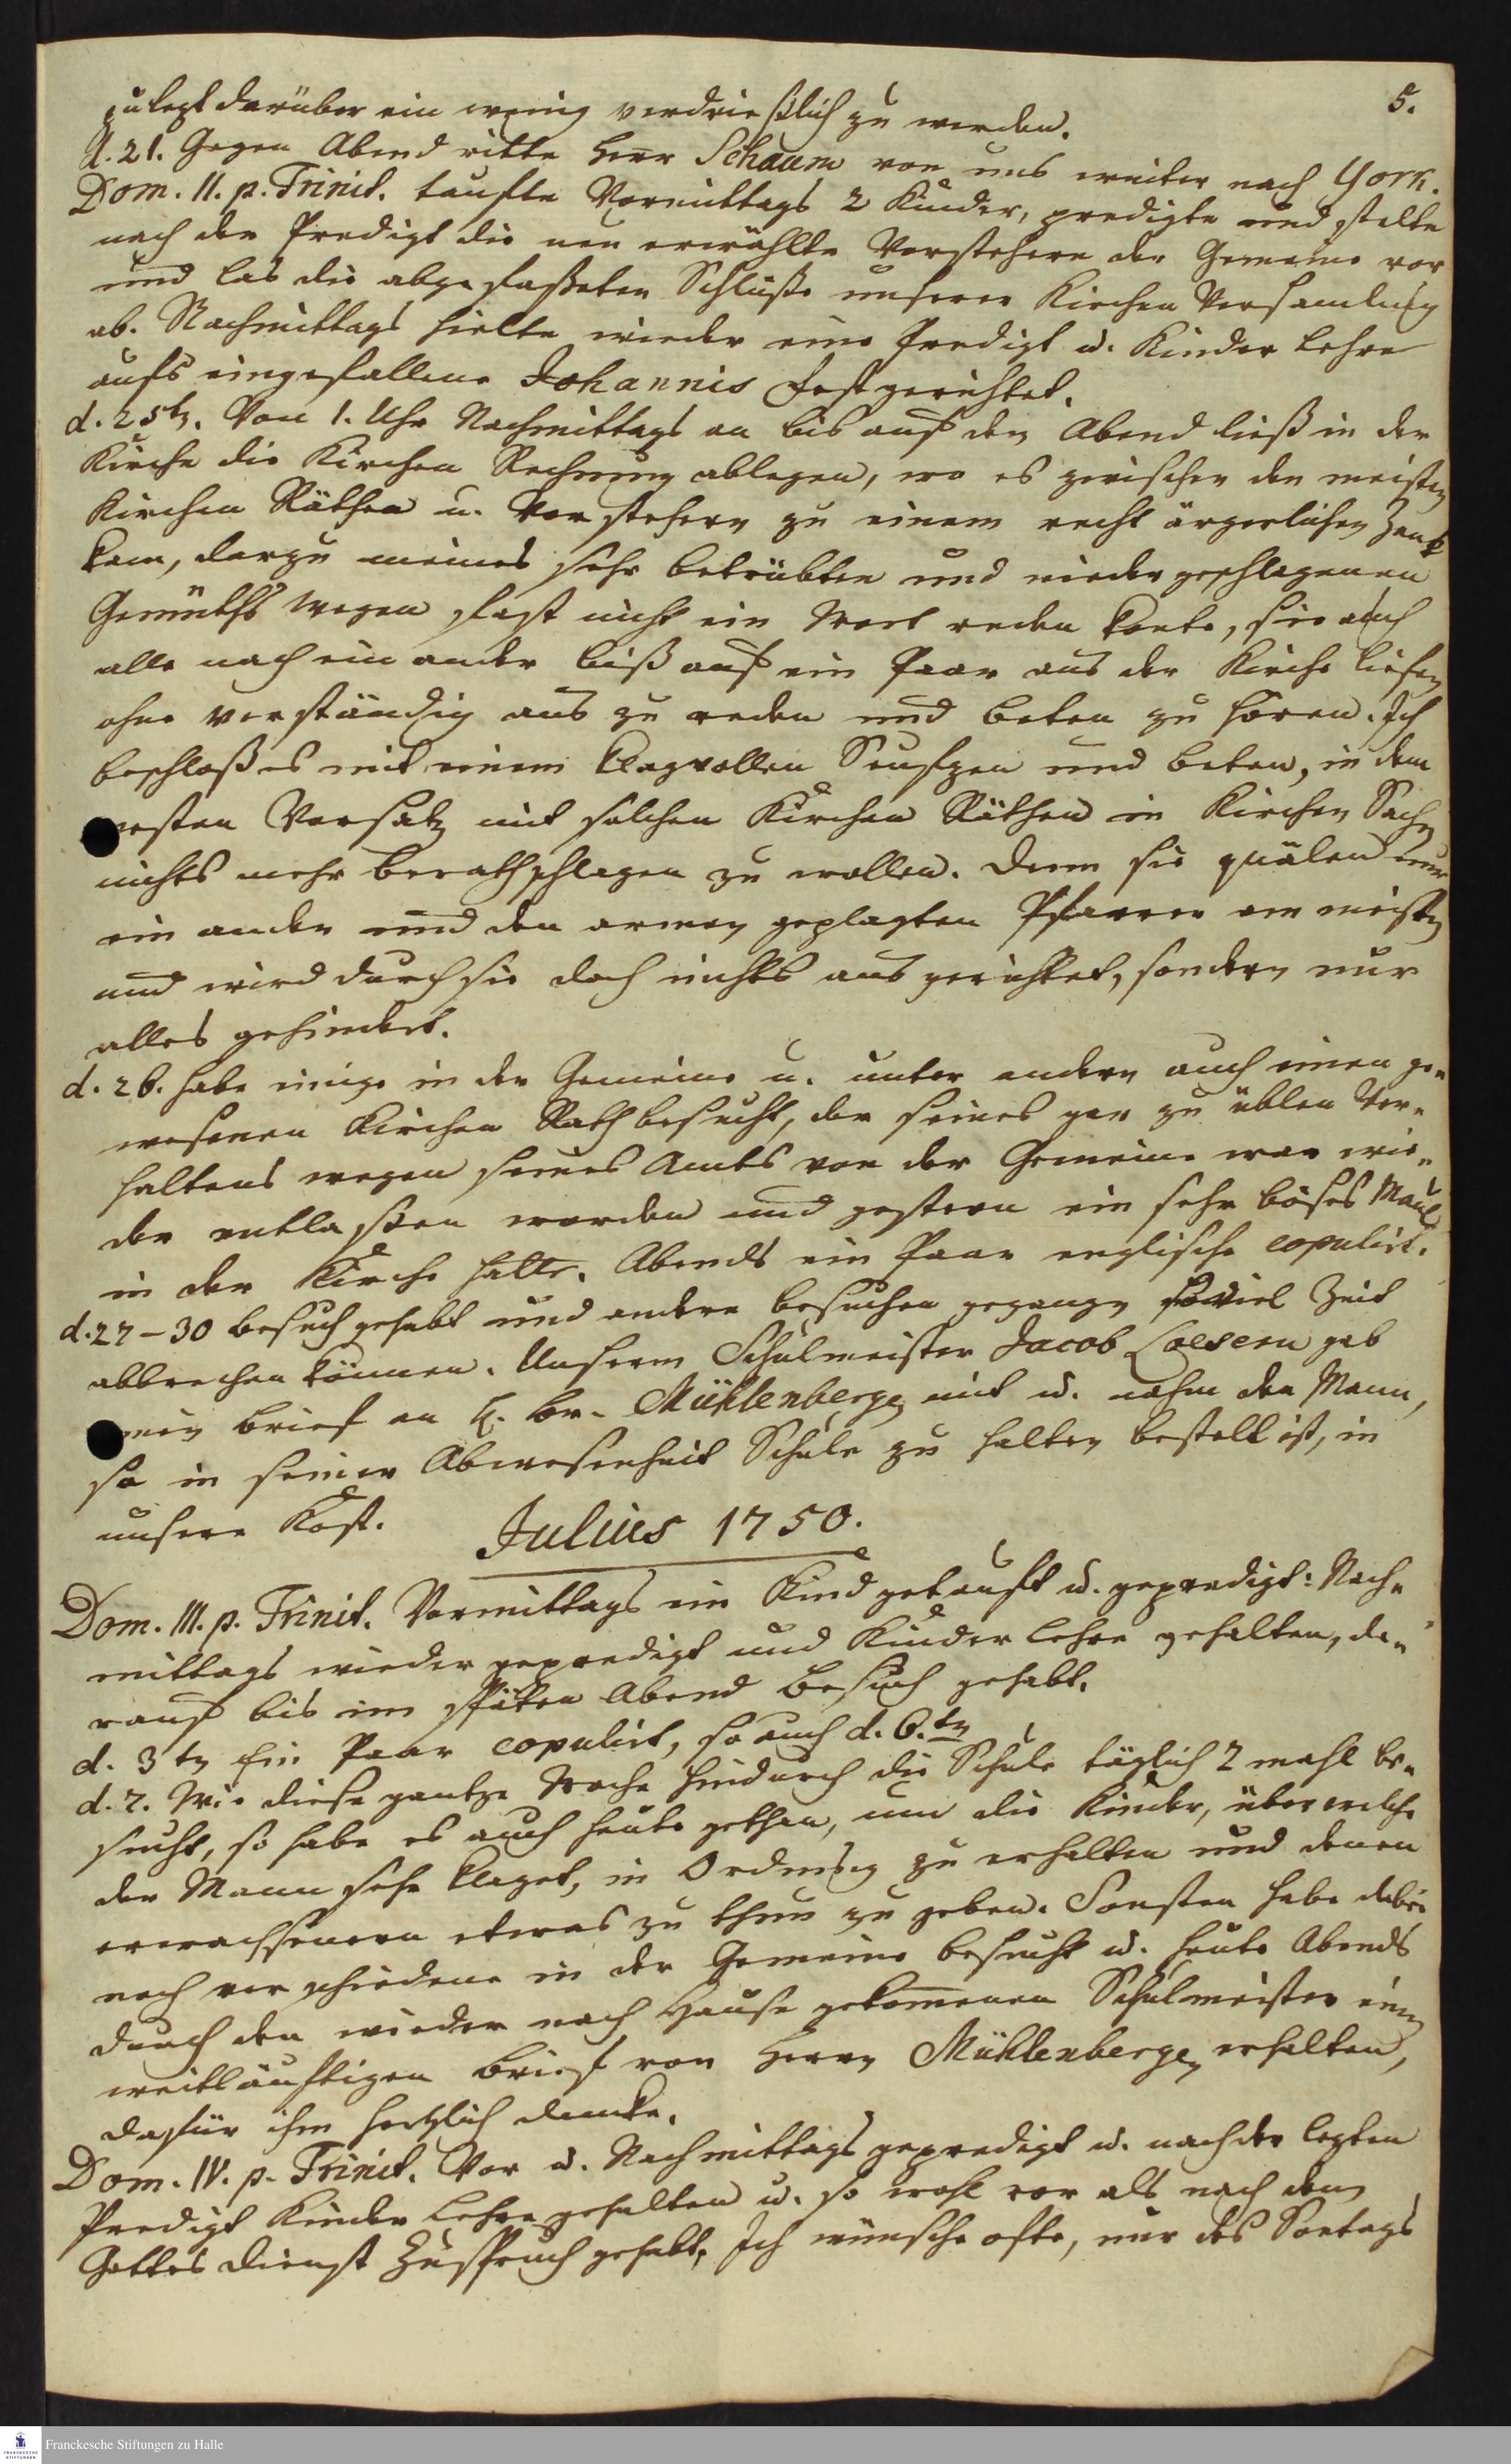 5.
zuletzt darüber ein wenig verdrießlich zu werden.
d. 21. Gegen Abend ritte Herr Schaum von uns weiter nach York.
Dom. II. p. Trinit. taufte Vormittags 2 Kinder, predigte und stelte
nach der Predigt die neu erwählte Vorstehern der Gemeine vor
und las die abgefaßeten Schlüße unserer Kirchen Versamlung
ab. Nachmittags hielte wieder eine Predigt u. Kinder Lehre
aufs eingefallene Johannis Fest gerichtet.
d. 25tn. Von 1. Uhr Nachmittags an bis auf den Abend ließ in der
Kirche die Kirchen Rechnung ablegen, wo es zwischen den meisten
Kirchen Räthen u. Vorstehern zu einem recht ärgerlichen Zank
kam, darzu meines sehr betrübten und niedergeschlagenen
Gemüths wegen fast nicht ein Wort reden konte, sie auch
alle nach ein ander biß auf ein Paar aus der Kirche liefen
ohne verständig aus zu reden und beten zu hören. Ich
beschloß es mit einem klagvollen Seufzen und beten, in dem
vesten Vorsatz mit solchen Kirchen Räthen in Kirchen Sachen
nichts mehr berathschlagen zu wollen. Denn sie quälen nur
ein ander und den armen geplagten Pfarrer am meisten
und wird durch sie doch nichts aus gerichtet, sondern nur
alles gehindert.
d. 26. habe einige in der Gemeine u. unter andern auch einen ge-
wesenen Kirchen Rath besucht, der seines gar zu üblen Ver-
haltens wegen seines Amts von der Gemeine war wie-
der entlaßen worden und gestern ein sehr böses Maul
in der Kirche hatte. Abends ein Paar englische copulirt.
d. 27-30 besuch gehabt und andere besuchen gegangen soviel Zeit
abbrechen können. Unserm Schulmeister Jacob Loesern gab
einen Brief an H. Br. Mühlenbergen mit u. nahm den Mann,
so in seiner Abwesenheit Schule zu halten bestelt ist, in
unsere Kost.
Julius 1750.
Dom. III. p. Trinit. Vormittags ein Kind getauft u. gepredigt: Nach-
mittags wieder gepredigt und Kinder Lehre gehalten, da-
rauf bis im späten Abend Besuch gehabt.
d. 3tn Ein Paar copulirt, so auch d. 6.tn
d. 7. Wie diese gantze Woche hindurch die Schule täglich 2 mahl be-
sucht, so habe es auch heute gethan, um die Kinder, über welche
der Mann sehr klaget, in Ordnung zu erhalten und denen
erwachsenern etwas zu thun zu geben. Sonsten habe dabei
noch verschiedene in der Gemeine besucht u. heute Abends
durch den wieder nach Hause gekommenen Schulmeister einen
weitläuftigen Brief von Herrn Mühlenbergen erhalten,
dafür ihm hertzlich dancke.
Dom. IV. p. Trinit. Vor u. Nachmittags gepredigt u. nach der letzten
Predigt Kinder Lehre gehalten u. so wohl vor als nach dem
Gottes Dienst Zuspruch gehabt. Ich wünsche ofte, nur des Sontags
Franckesche Stiftungen zu Halle